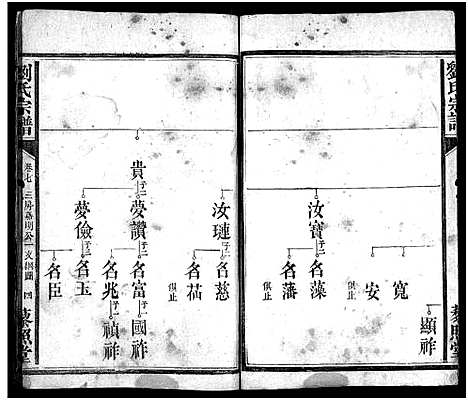 劉氏宗譜
顯祚
寬
安
俱止
汝寶 子二
名藻
名藩
俱止
汝璉 子二
名慈
名苫
俱止
貴 子二
夢讚 子二
名富 子一
國祚
名兆 子一
禎祚
夢儉 子二
名玉
名臣
劉氏宗譜
卷七
四
藜照堂